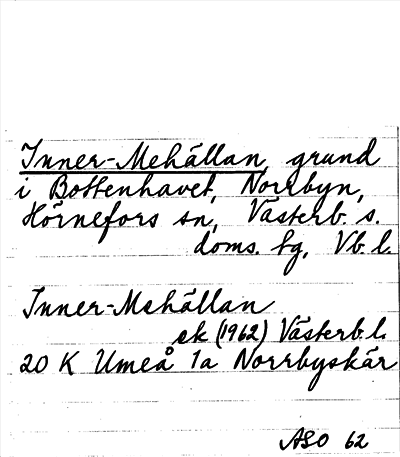 Inner-Mehällan, grund
i Bottenhavet, Norrbyn,
Hörnefors sn, Västerb. s.
doms. tg, Vb. l.
Inner-Mehällan
ek (1962) Västerb. l.
20 K Umeå 1a Norrbyskär
ASO 62